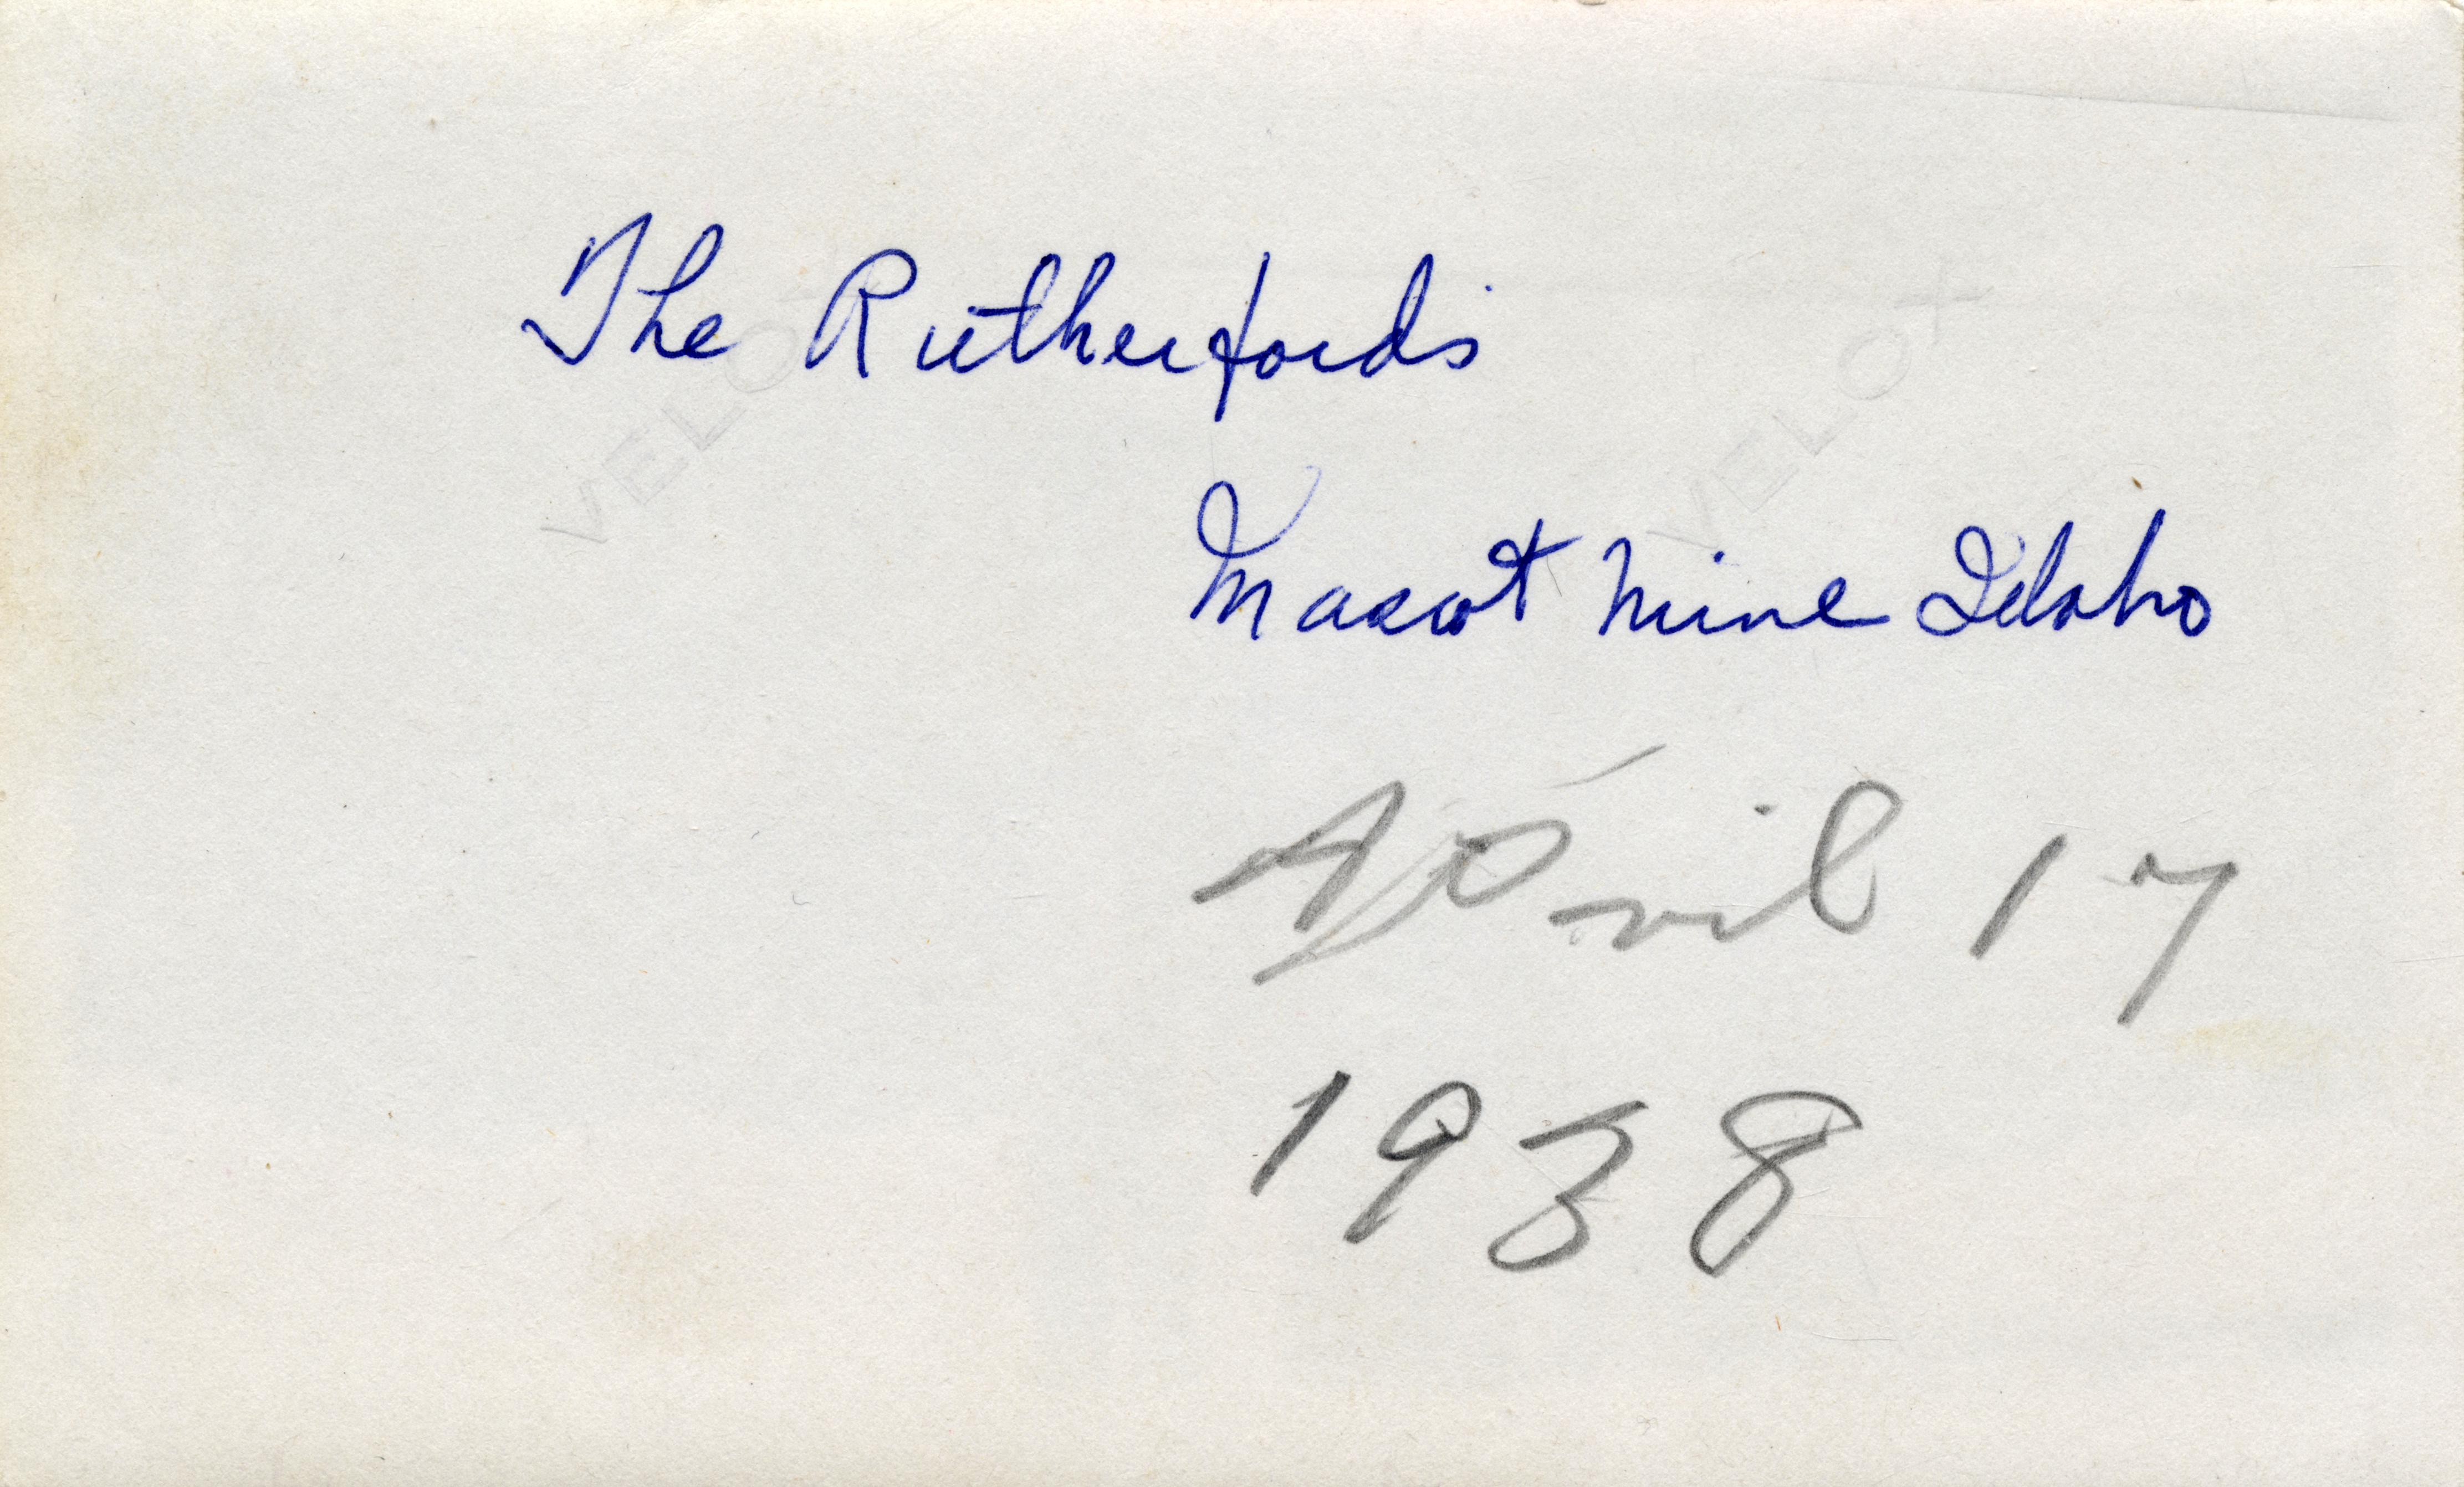 The Rutherfords
Mascot Mine Idaho
April 17
1938
VELOX
VELOX